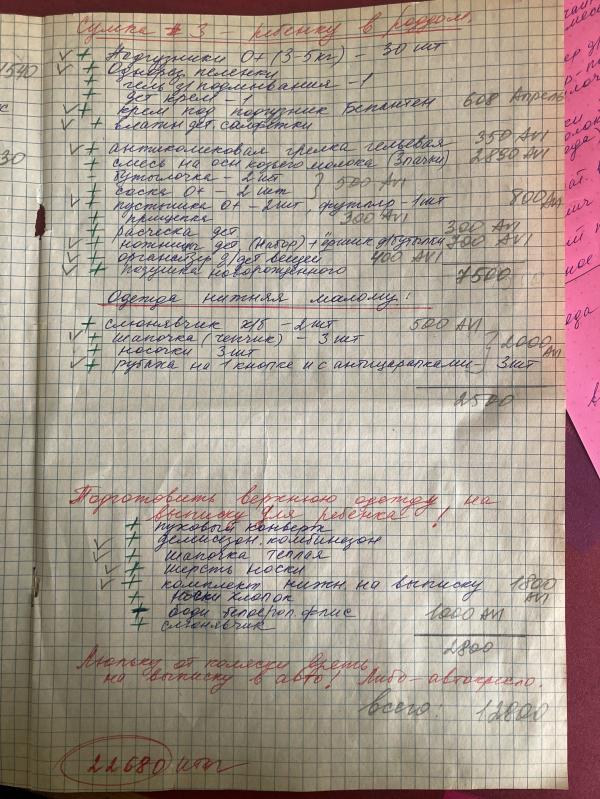 Сумка # 3 – ребенку в роддом.
✓ + Подгузники 0+ (3-5кг) – 30 шт
✓ + Однораз. пеленки
+ гель д/подмывания – 1
+ дет крем – 1
✓ + крем под подгузник Бепантен 608 Апрель
✓ + влажн дет. салфетки
✓ + антиколиковая грелка гелевая 350 AVI
+ смесь на осн козьего молока (3 пачки) 2850 AVI
- бутылочка – 2 шт } 500 AVI
+ соска 0+ – 2 шт
✓ + пустышка 0+ – 2 шт, футляр – 1 шт 800 AVI
+ присыпка 300 AVI
+ расческа дет 300 AVI
✓ + ножницы дет. (набор) + ёршик д/бутылки 700 AVI
✓ + органайзер д/дет вещей 400 AVI
✓ + подушка новорожденного
7500
Одежда нижняя малому!
+ слюнявчик х/б – 2 шт 500 AVI
✓ + шапочка (чепчик) – 3 шт } 2000 AVI
+ носочки 3 шт
✓ + рубаха на 1 кнопке и с антицарапками – 3 шт
2500
Подготовить верхнюю одежду на
выписку для ребенка!
+ пуховый конверт
✓ + демисезон. комбинезон
✓ + шапочка теплая
✓ + шерсть носки
✓ + комплект нижн. на выписку 1800 AVI
+ носки хлопок
+ боди флис 1000 AVI
+ слюнявчик
2800
Люльку от коляски брать
на выписку в авто! Либо – автокресло.
всего: 12800
22680 итог
1540
30